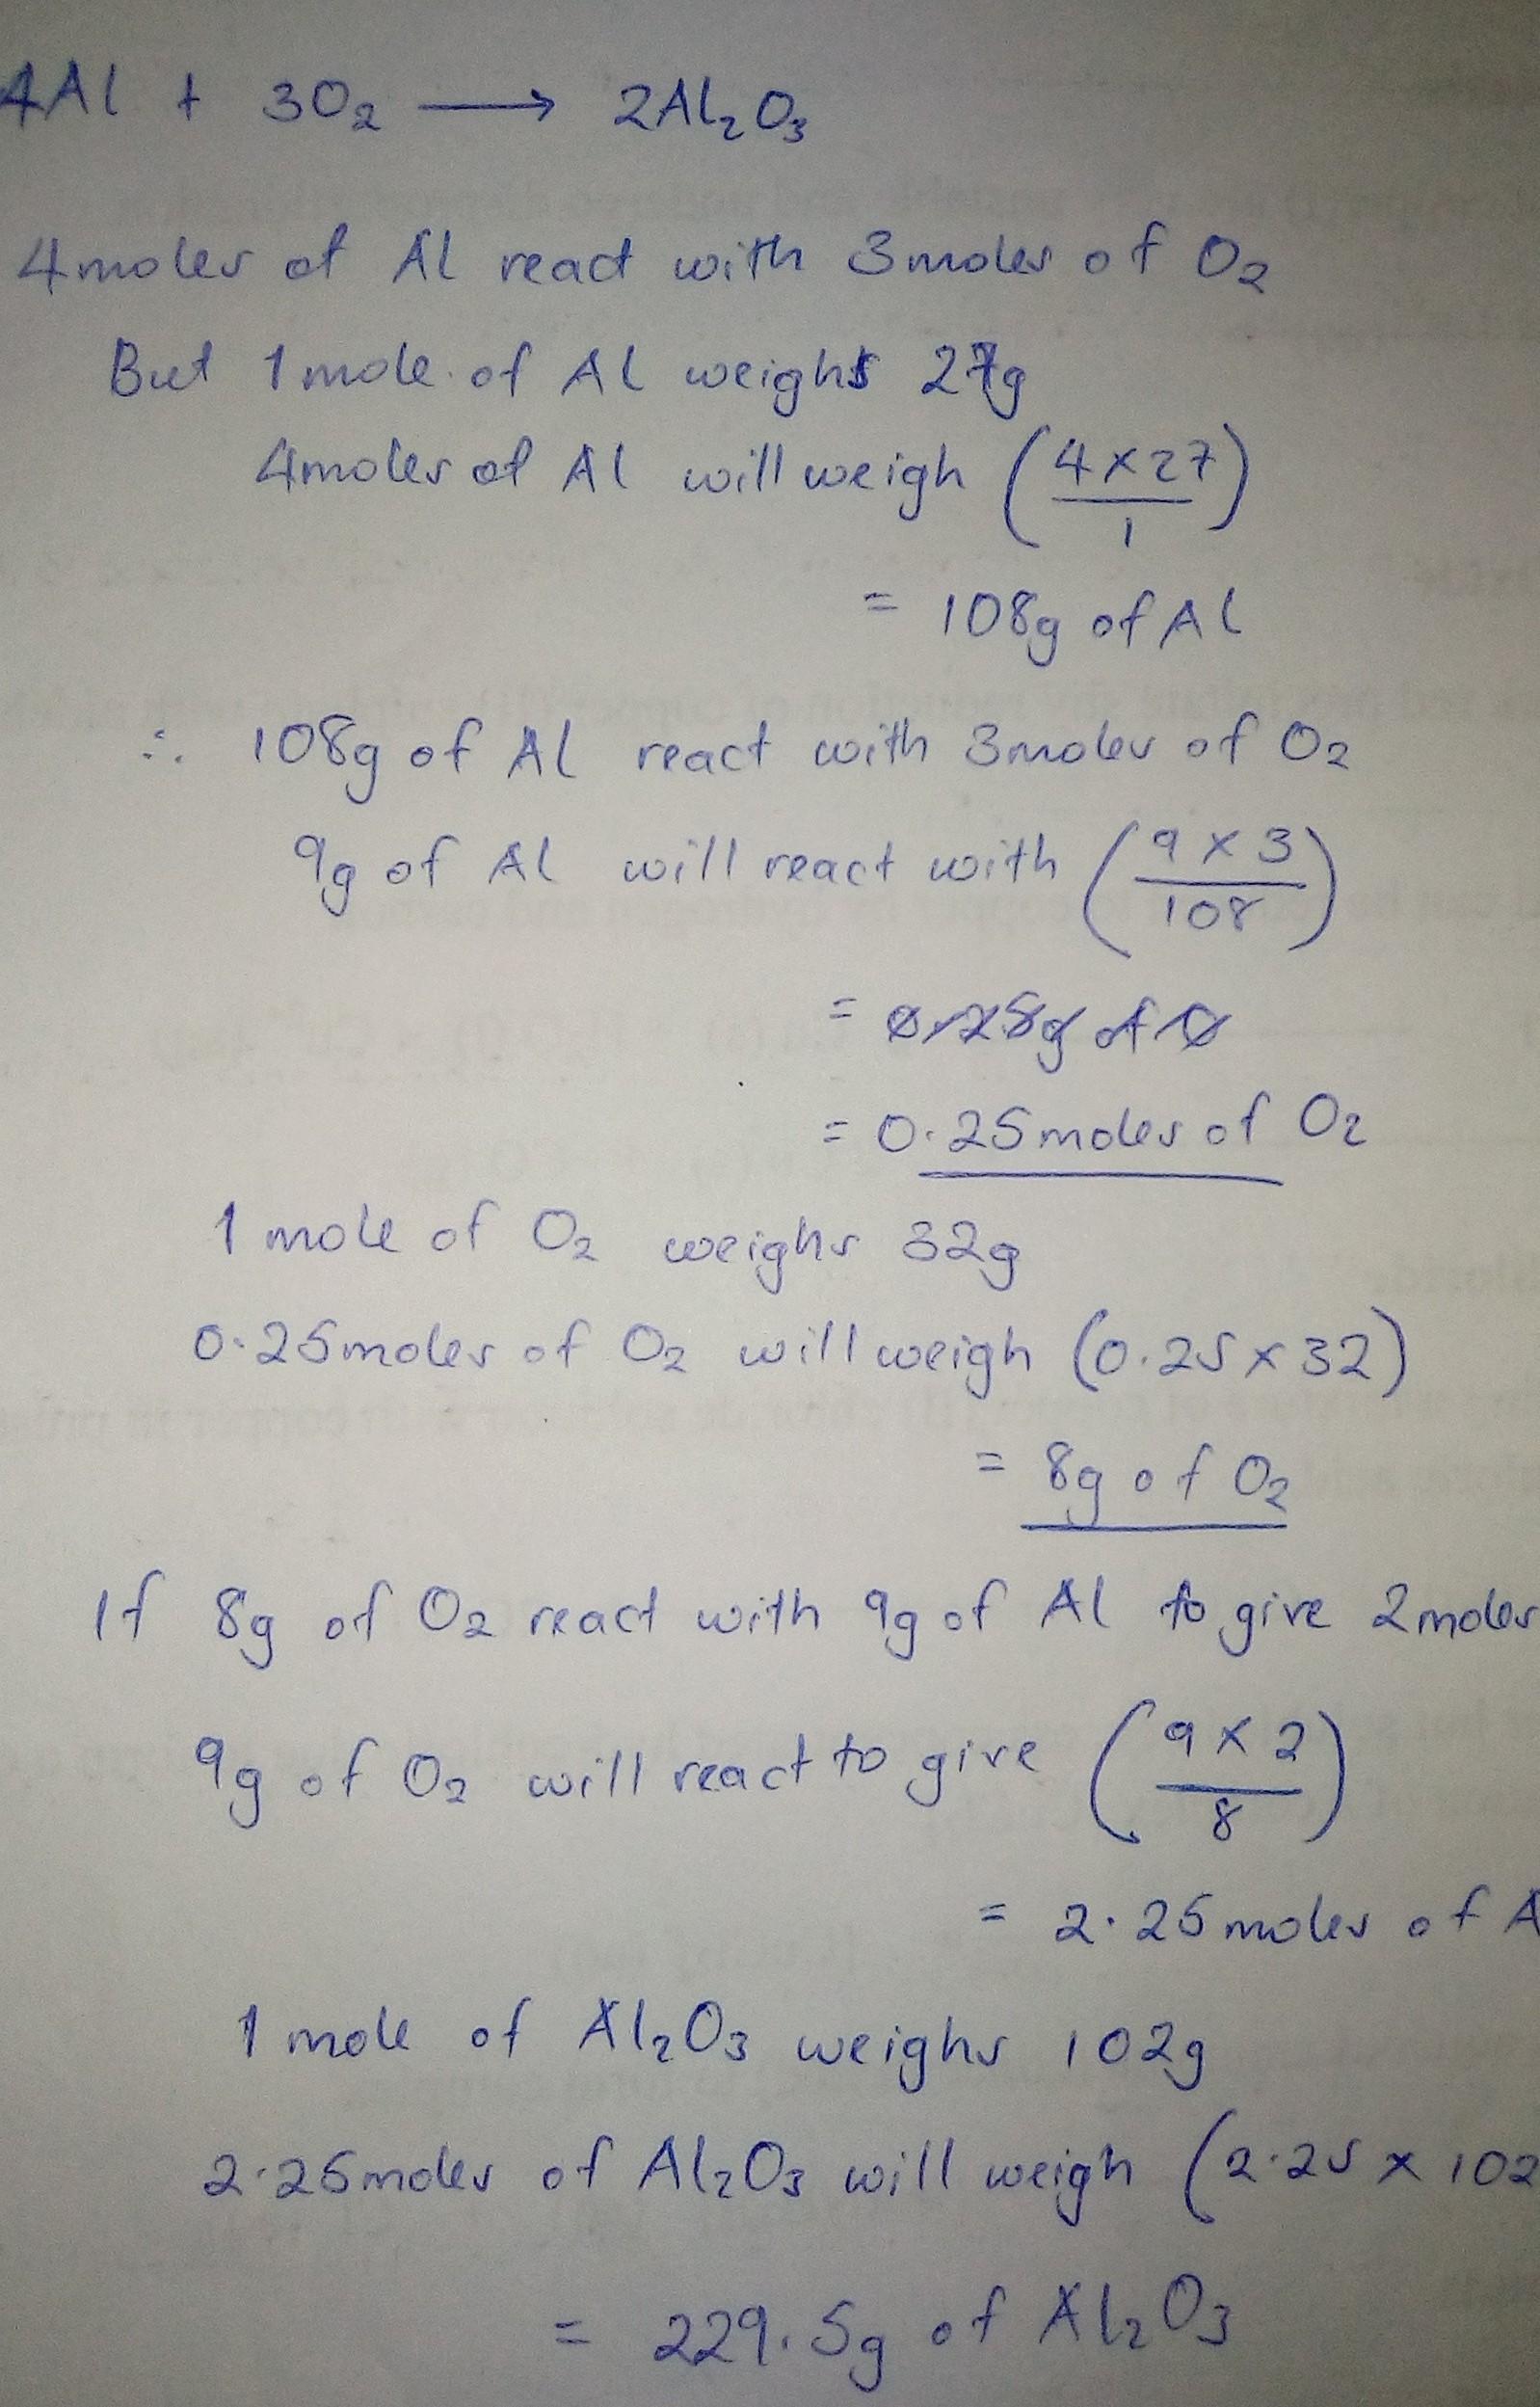 4Al + 3O₂ ⟶ 2Al₂O₃
4moles of Al react with 3moles of O₂
But 1mole of Al weighs 27g
4moles of Al will weigh (4×27/1)
= 108g of Al
∴ 108g of Al react with 3moles of O₂
9g of Al will react with (9×3/108)
= 0.25moles of O₂
1 mole of O₂ weighs 32g
0.25moles of O₂ will weigh (0.25×32)
= 8g of O₂
If 8g of O₂ react with 9g of Al to give 2moles
9g of O₂ will react to give (9×2/8)
= 2.25moles of A
1 mole of Al₂O₃ weighs 102g
2.25moles of Al₂O₃ will weigh (2.25×102
= 229.5g of Al₂O₃